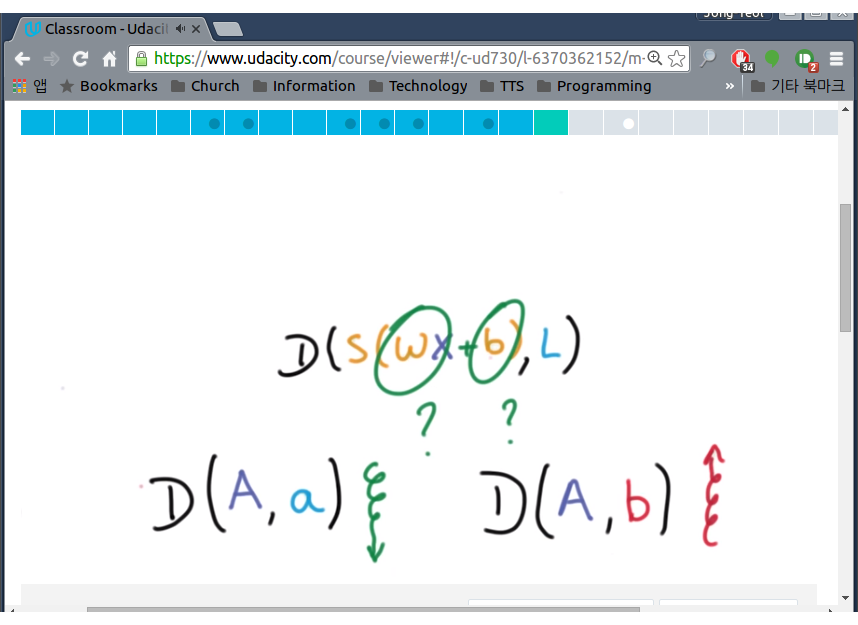 Jong Yeol
Classroom - Udacit
https://www.udacity.com/course/viewer#!/c-ud730/l-6370362152/m-
34
2
앱 Bookmarks Church Information Technology TTS Programming » 기타 북마크
D(S(WX+b), L)
? ?
D(A, a) D(A, b)